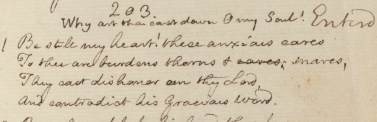 293.
Why art thou cast down O my Soul! Enterd
1 Be still my heart! these anxious cares
To thee are burdens thorns & cares, snares,
They cast dishonor on thy Lord,
And contradict his Gracious Word.